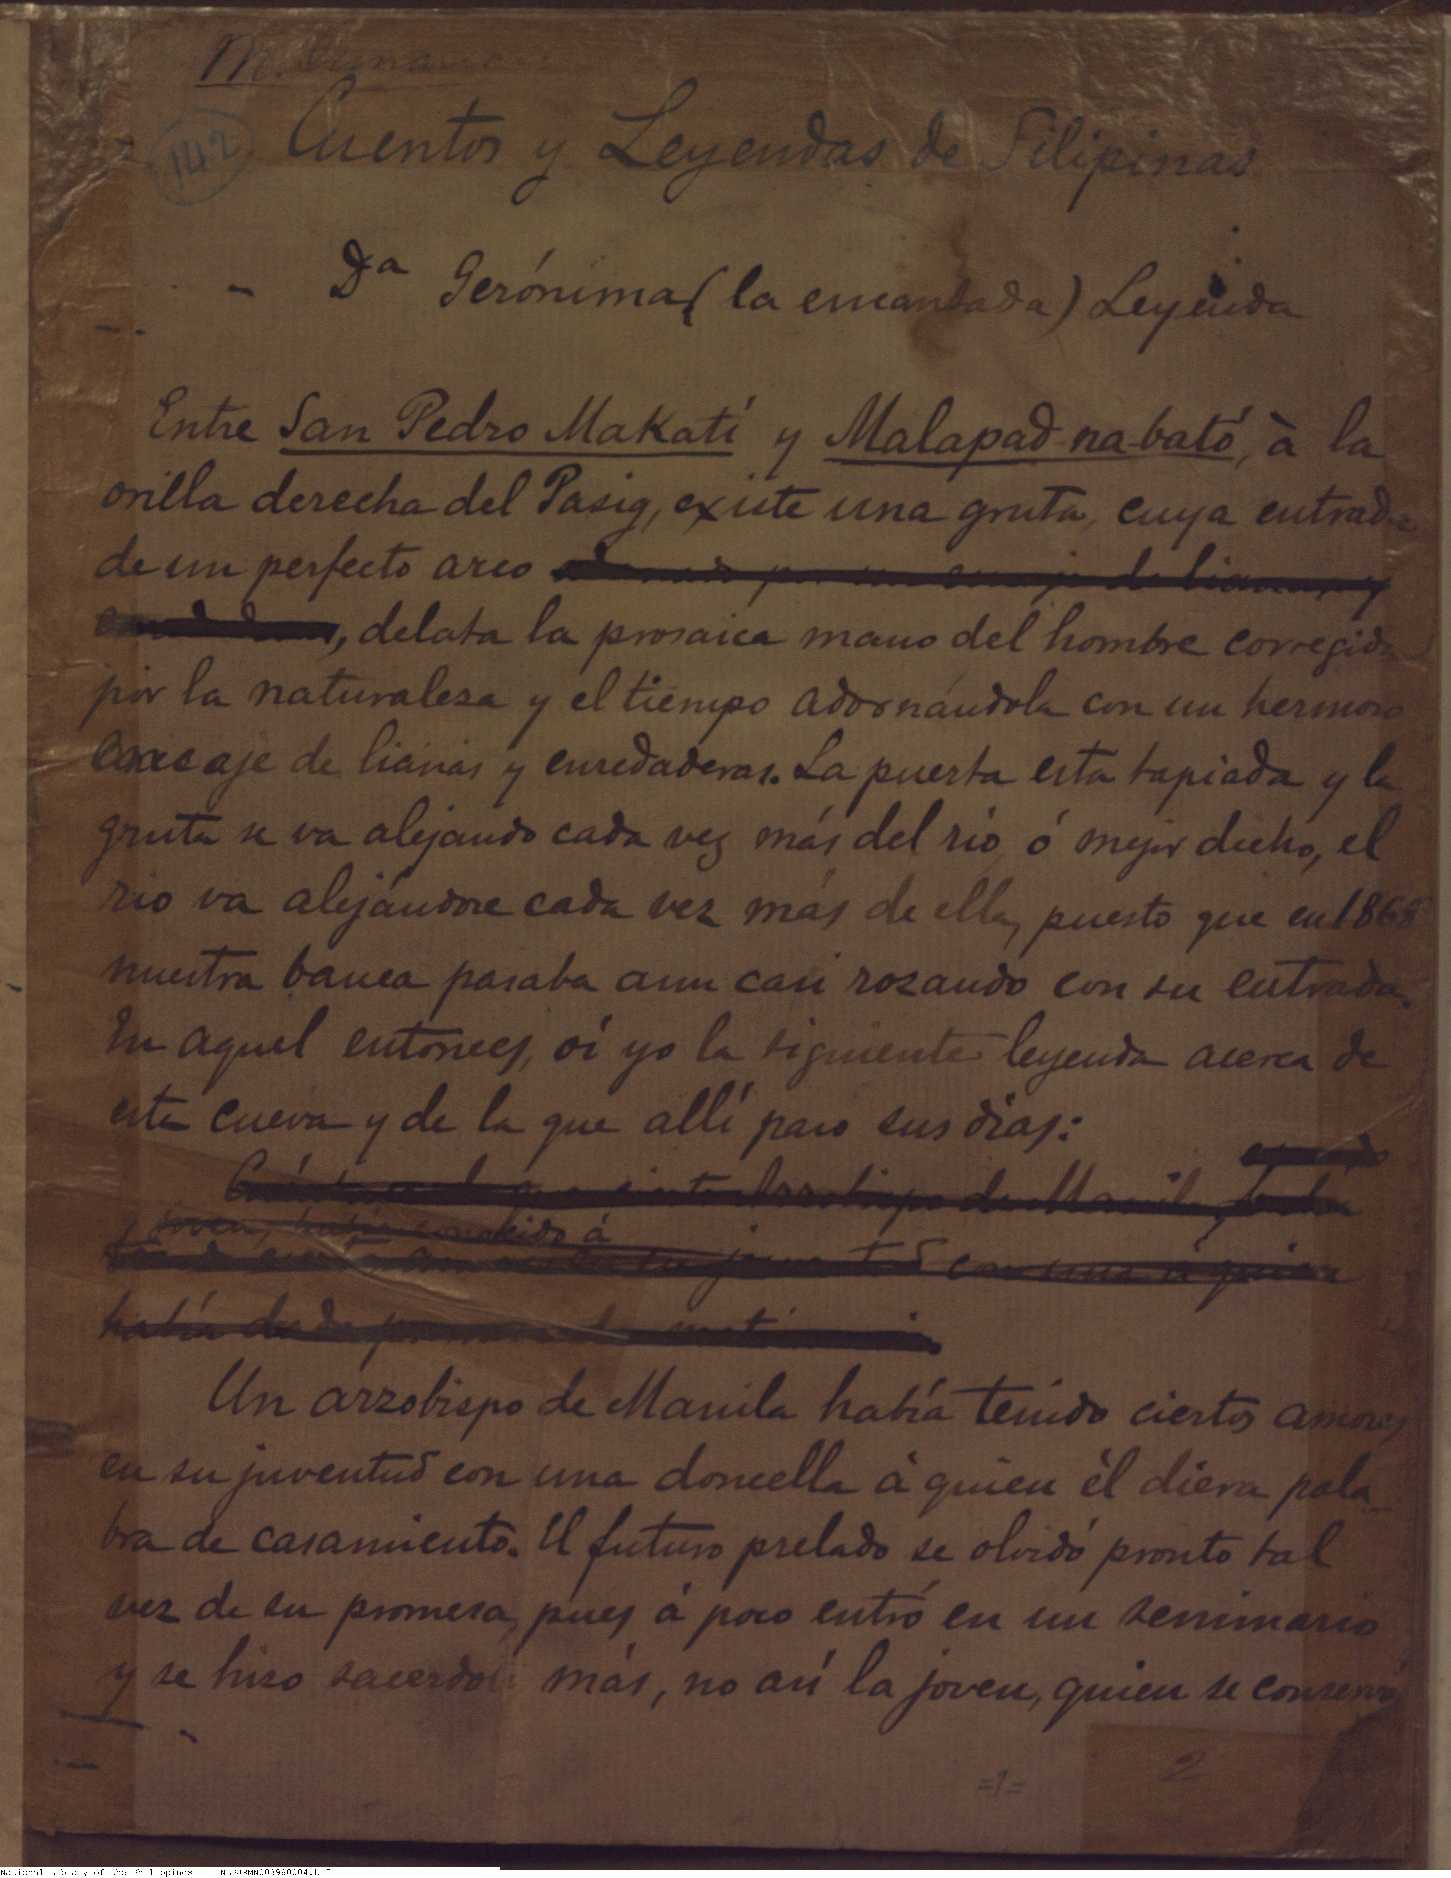 142
Cuentos y Leyendas de Filipinas
Dª Gerónima (la encantada) Leyenda
Entre San Pedro Makatí y Malapad-na-bató, à la
orilla derecha del Pasig, existe una gruta, cuya entrada
de un perfecto arco
, delata la prosaica mano del hombre corregida
por la naturaleza y el tiempo adornándola con un hermoso
de lianas y enredaderas. La puerta esta tapiada y la
gruta se va alejando cada vez más del rio, ó mejor dicho, el
rio va alejándose cada vez más de ella, puesto que en 1868
nuestra banca pasaba aun casi rozando con su entrada.
En aquel entonces, oí yo la siguiente leyenda acerca de
esta cueva y de la que allí paso sus dias:
Arzobispo de Manila,
y joven, había conocido á
había
Un arzobispo de Manila había tenido ciertos amores
en su juventud con una doncella á quien él diera pala-
bra de casamiento. El futuro prelado se olvidó pronto tal
vez de su promesa, pues á poco entró en un seminario
y se hizo sacerdote más, no así la joven, quien se conservó
=1=
2
National Library of the Philippines